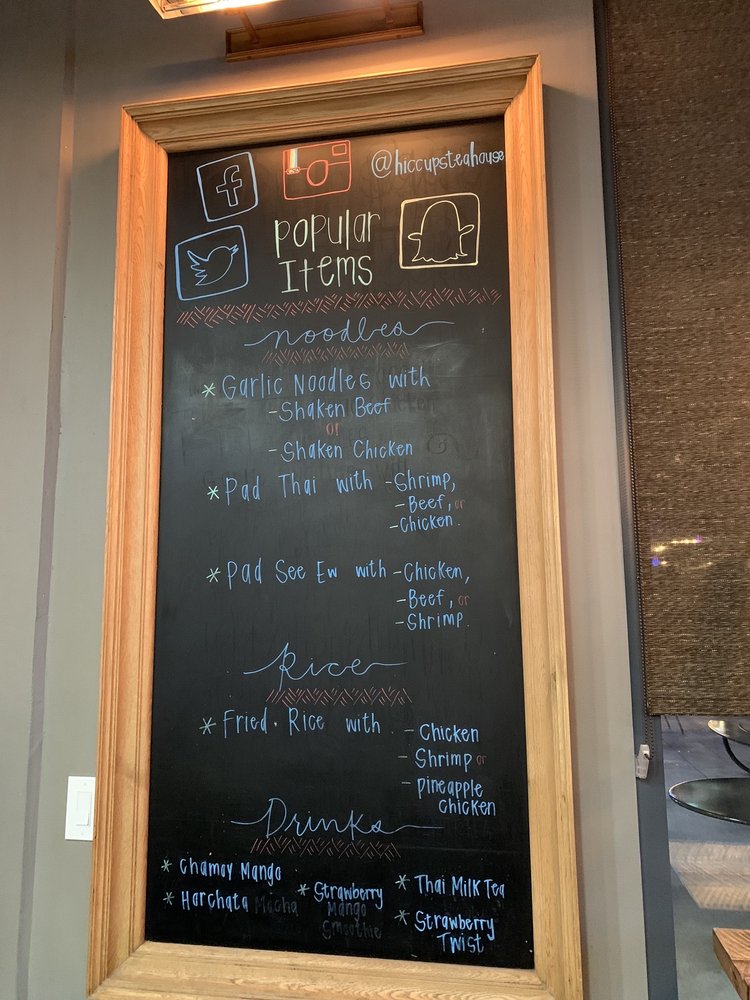 @hiccupsteahouse
Popular
Items
Noodles
* Garlic Noodles with
- Shaken Beef
or
- Shaken Chicken
* Pad Thai with - Shrimp,
- Beef, or
- Chicken.
* Pad See Ew with - Chicken,
- Beef, or
- Shrimp.
Rice
* Fried Rice with - Chicken
- Shrimp or
- Pineapple
chicken
Drinks
* Chamoy Mango
* Harchata Mocha
* Strawberry
Mango
Smoothie
* Thai Milk Tea
* Strawberry
Twist